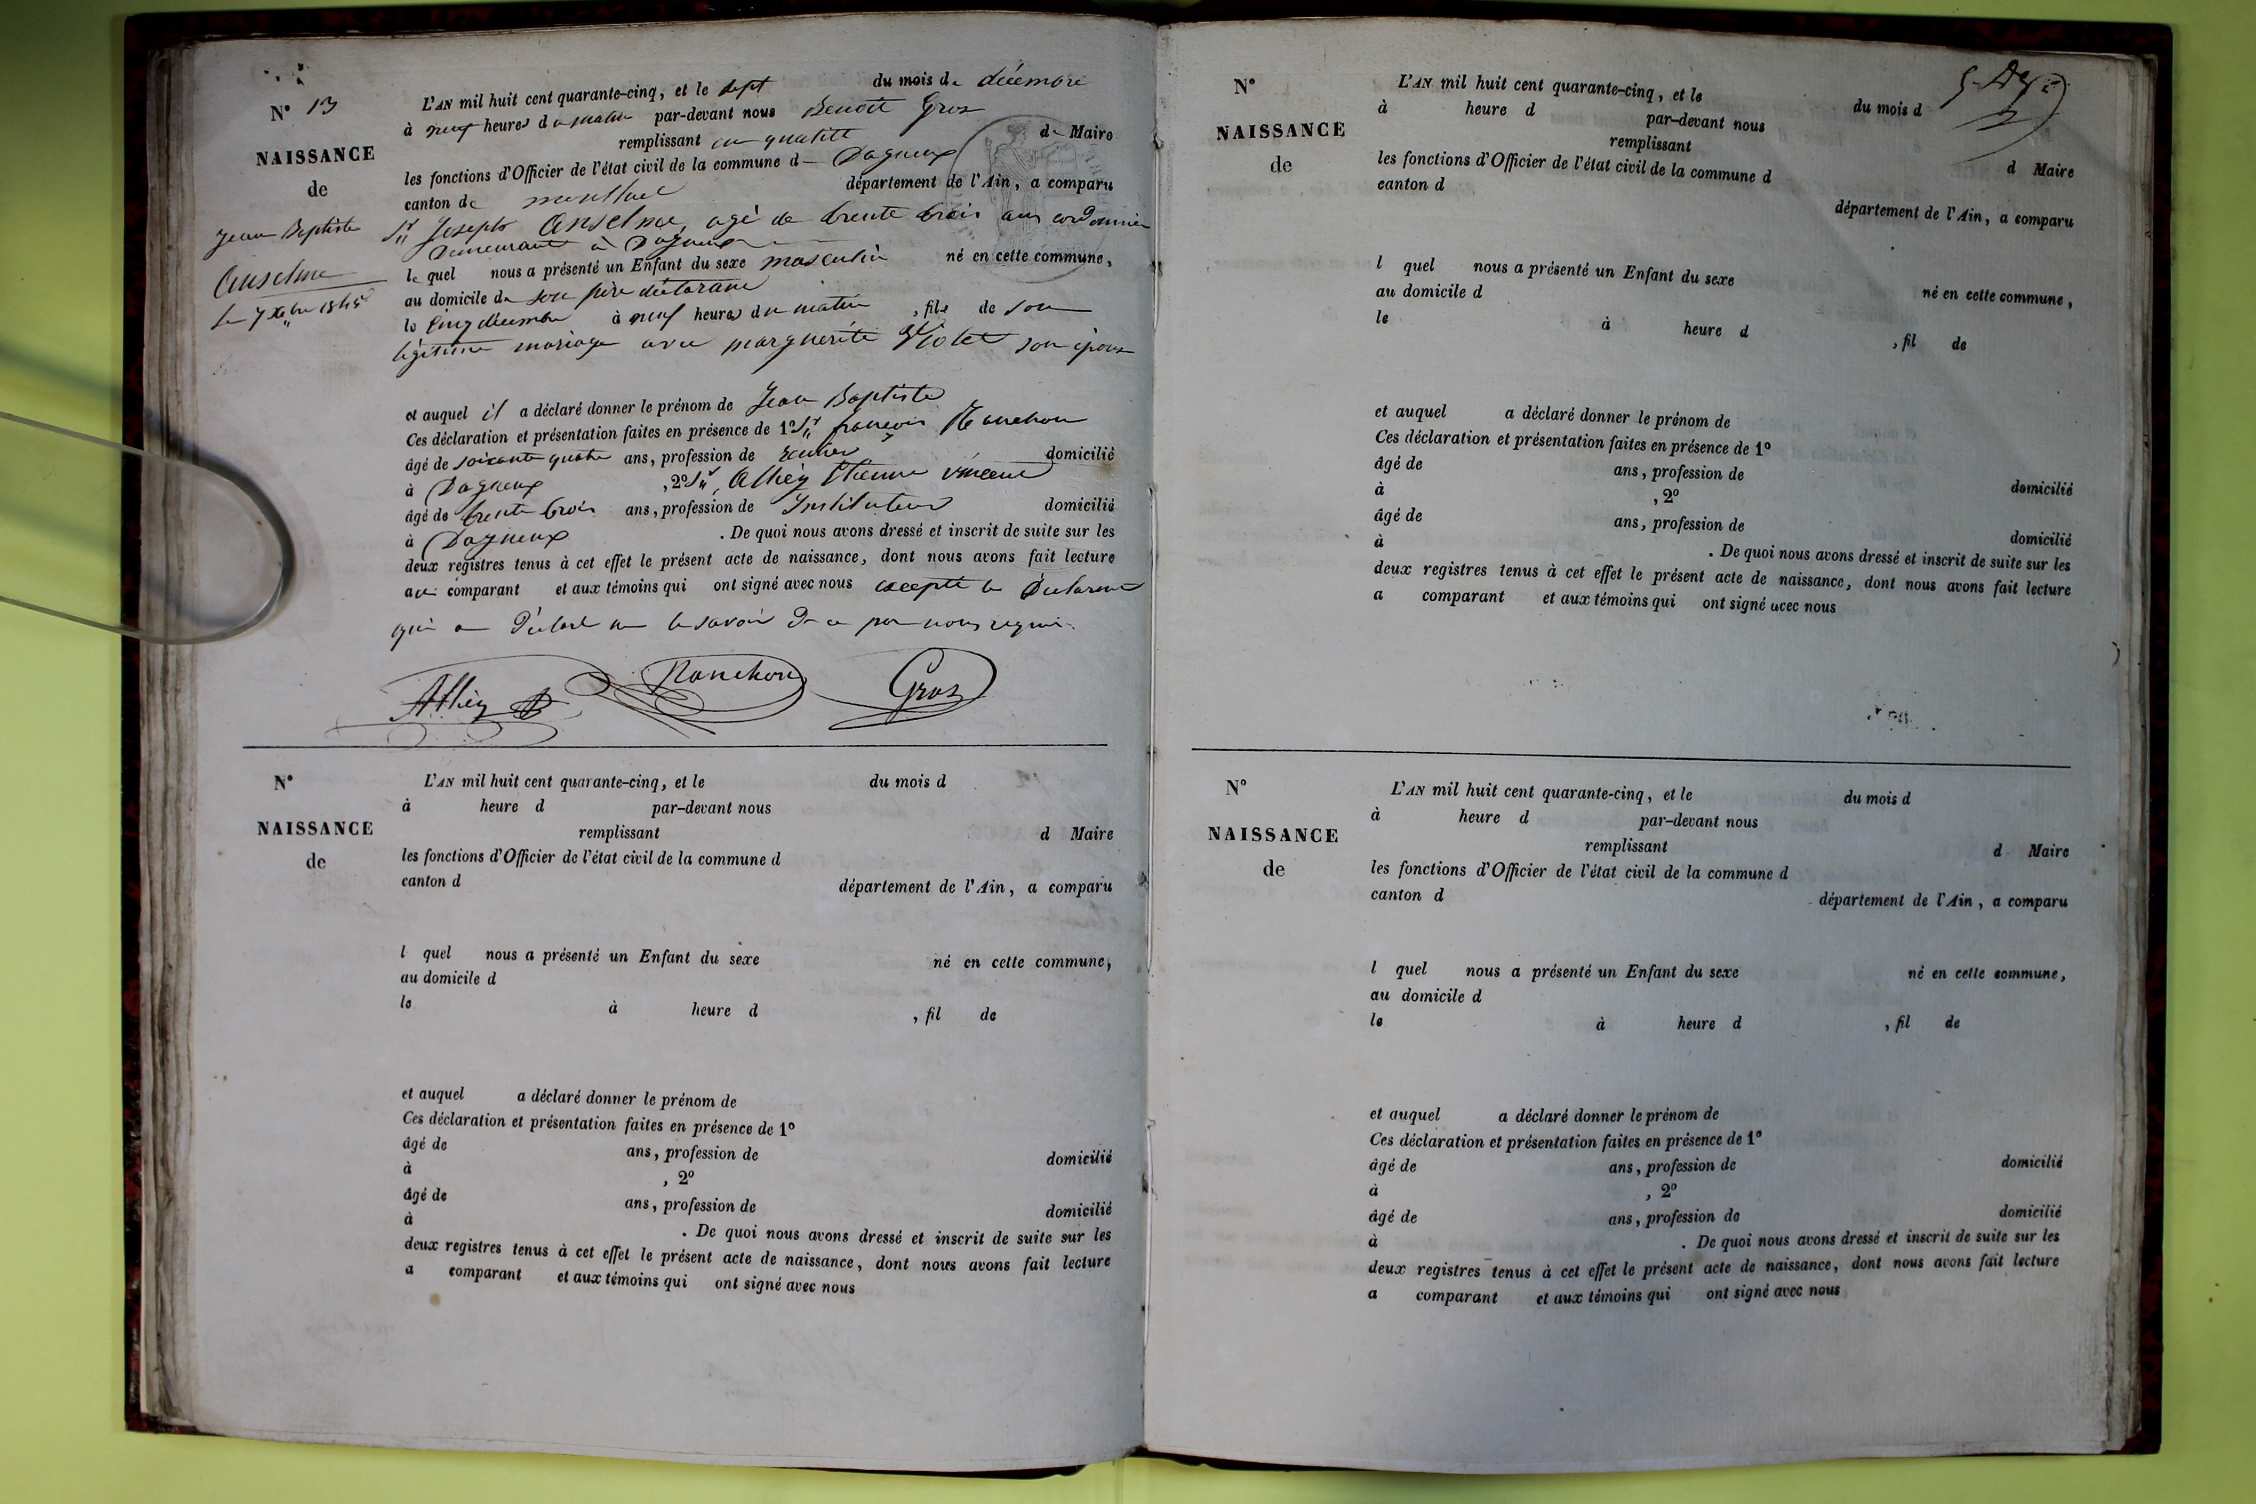 N° 13
NAISSANCE
de
Jean Baptiste
Anselme
le 7 Xbre 1845
L'AN mil huit cent quarante-cinq, et le sept du mois de décembre
à neuf heures du matin par-devant nous Benoît Gros
remplissant en qualité de Maire
les fonctions d'Officier de l'état civil de la commune de Dagneux
canton de montluel département de l'Ain, a comparu
Sr Joseph Anselme, agé de trente trois ans cordonnier
Demeurant à Dagneux
lequel nous a présenté un Enfant du sexe masculin né en cette commune,
au domicile de son père déclarant
le cinq décembre à neuf heures du matin, fils de son
légitime mariage avec marguerite Violet son épouse
et auquel il a déclaré donner le prénom de Jean Baptiste
Ces déclaration et présentation faites en présence de 1° Sr françois Ranchon
âgé de soixante quatre ans, profession de rentier domicilié
à Dagneux, 2° Sr Athéy Etienne vincent
âgé de trente trois ans, profession de Instituteur domicilié
à Dagneux. De quoi nous avons dressé et inscrit de suite sur les
deux registres tenus à cet effet le présent acte de naissance, dont nous avons fait lecture
au comparant et aux témoins qui ont signé avec nous excepté le Déclarant
qui a Déclaré ne le savoir De ce par nous requis.
Athéy Ranchon Gros
N°
NAISSANCE
de
L'AN mil huit cent quarante-cinq, et le du mois d
à heure d par-devant nous
remplissant d Maire
les fonctions d'Officier de l'état civil de la commune d
canton d département de l'Ain, a comparu
l quel nous a présenté un Enfant du sexe né en cette commune,
au domicile d
le à heure d , fil de
et auquel a déclaré donner le prénom de
Ces déclaration et présentation faites en présence de 1°
âgé de ans, profession de domicilié
à , 2°
âgé de ans, profession de domicilié
à . De quoi nous avons dressé et inscrit de suite sur les
deux registres tenus à cet effet le présent acte de naissance, dont nous avons fait lecture
a comparant et aux témoins qui ont signé avec nous
N°
NAISSANCE
de
L'AN mil huit cent quarante-cinq, et le du mois d
à heure d par-devant nous
remplissant d Maire
les fonctions d'Officier de l'état civil de la commune d
canton d département de l'Ain, a comparu
l quel nous a présenté un Enfant du sexe né en cette commune,
au domicile d
le à heure d , fil de
et auquel a déclaré donner le prénom de
Ces déclaration et présentation faites en présence de 1°
âgé de ans, profession de domicilié
à , 2°
âgé de ans, profession de domicilié
à . De quoi nous avons dressé et inscrit de suite sur les
deux registres tenus à cet effet le présent acte de naissance, dont nous avons fait lecture
a comparant et aux témoins qui ont signé avec nous
N°
NAISSANCE
de
L'AN mil huit cent quarante-cinq, et le du mois d
à heure d par-devant nous
remplissant d Maire
les fonctions d'Officier de l'état civil de la commune d
canton d département de l'Ain, a comparu
l quel nous a présenté un Enfant du sexe né en cette commune,
au domicile d
le à heure d , fil de
et auquel a déclaré donner le prénom de
Ces déclaration et présentation faites en présence de 1°
âgé de ans, profession de domicilié
à , 2°
âgé de ans, profession de domicilié
à . De quoi nous avons dressé et inscrit de suite sur les
deux registres tenus à cet effet le présent acte de naissance, dont nous avons fait lecture
a comparant et aux témoins qui ont signé avec nous